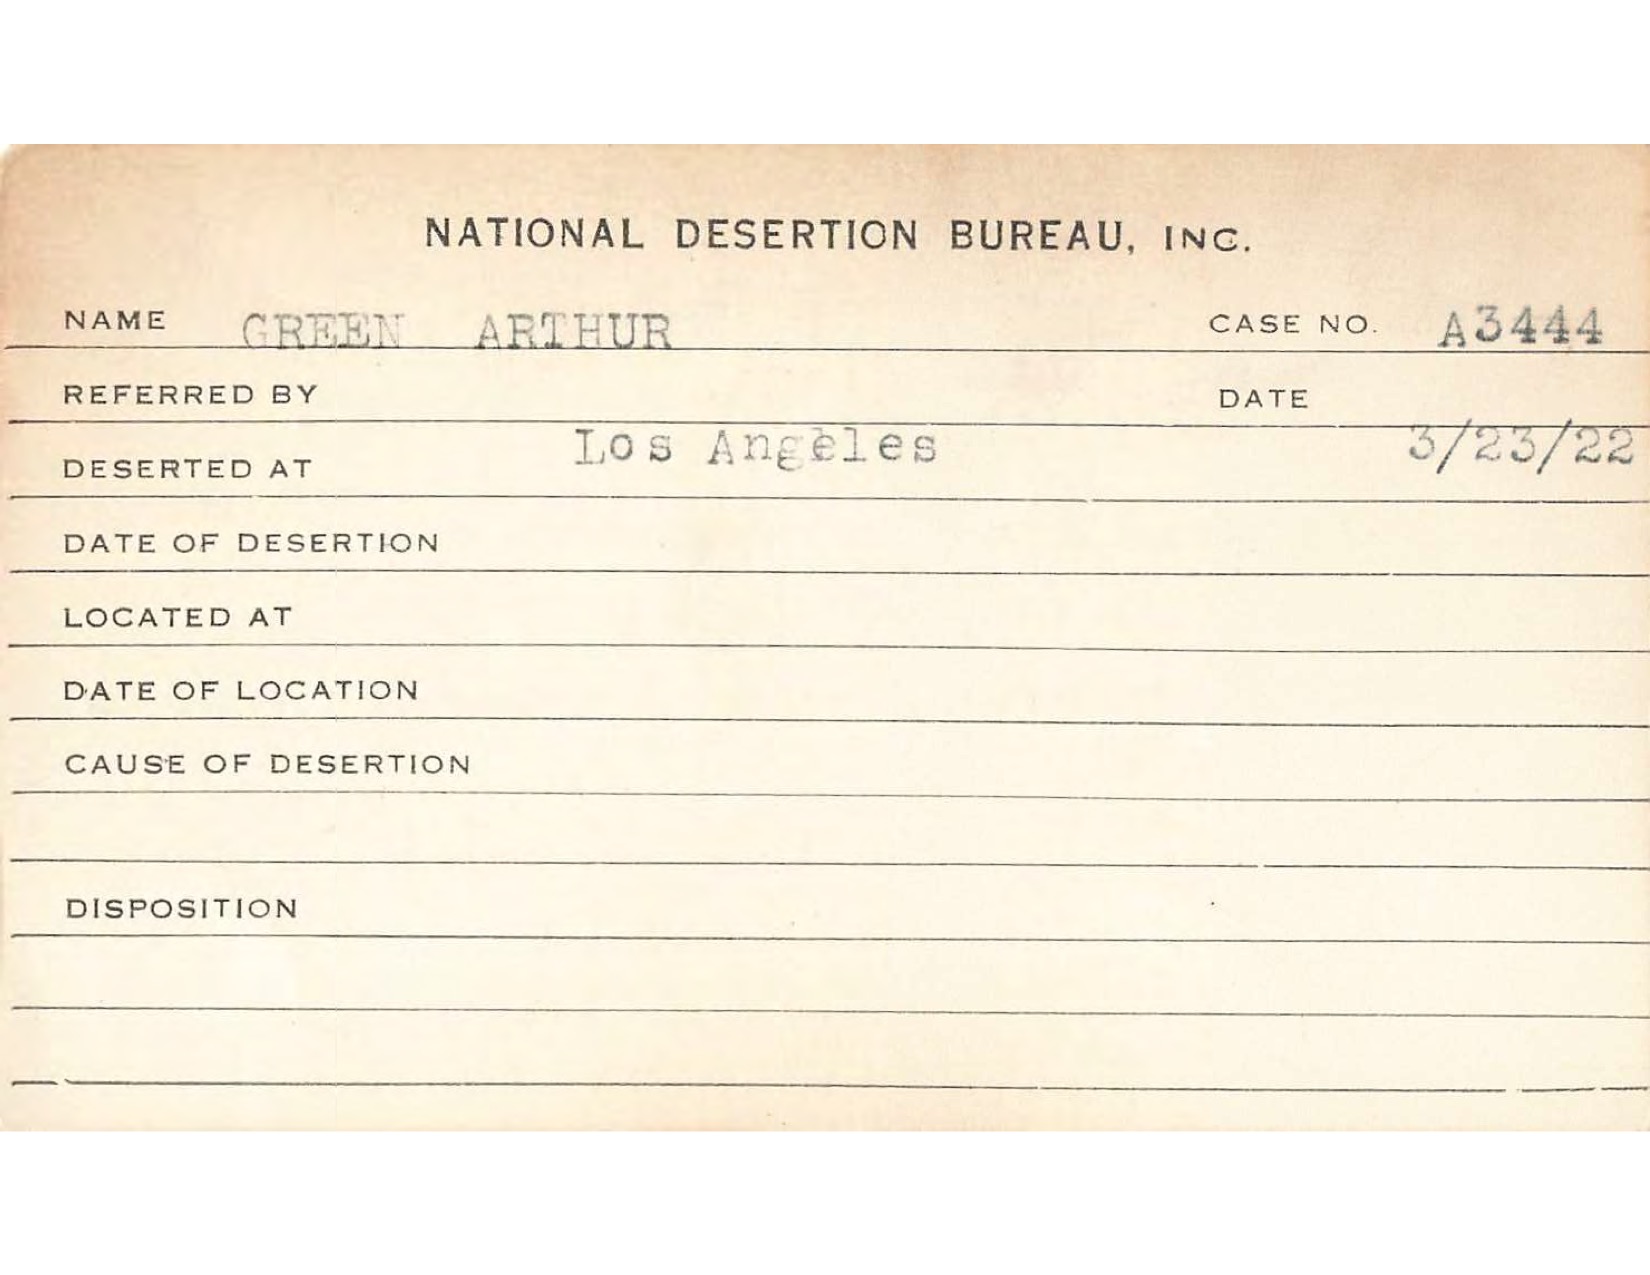 NATIONAL DESERTION BUREAU, INC.
NAME GREEN ARTHUR CASE NO. A3444
REFERRED BY DATE
Los Angeles 3/23/22
DESERTED AT
DATE OF DESERTION
LOCATED AT
DATE OF LOCATION
CAUSE OF DESERTION
DISPOSITION